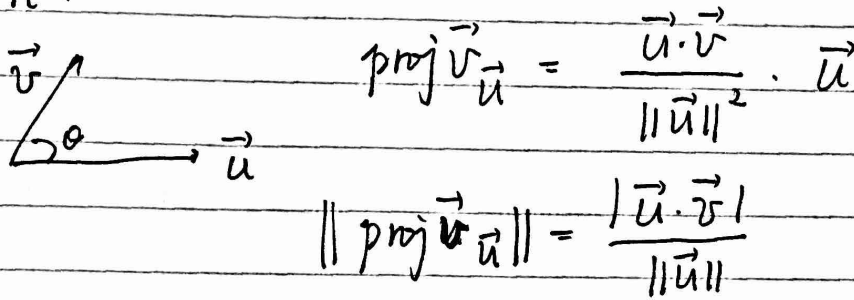 v⃗
θ
u⃗
proj v⃗_u⃗ = (u⃗·v⃗ / ||u⃗||²) · u⃗
|| proj v⃗_u⃗ || = |u⃗·v⃗| / ||u⃗||